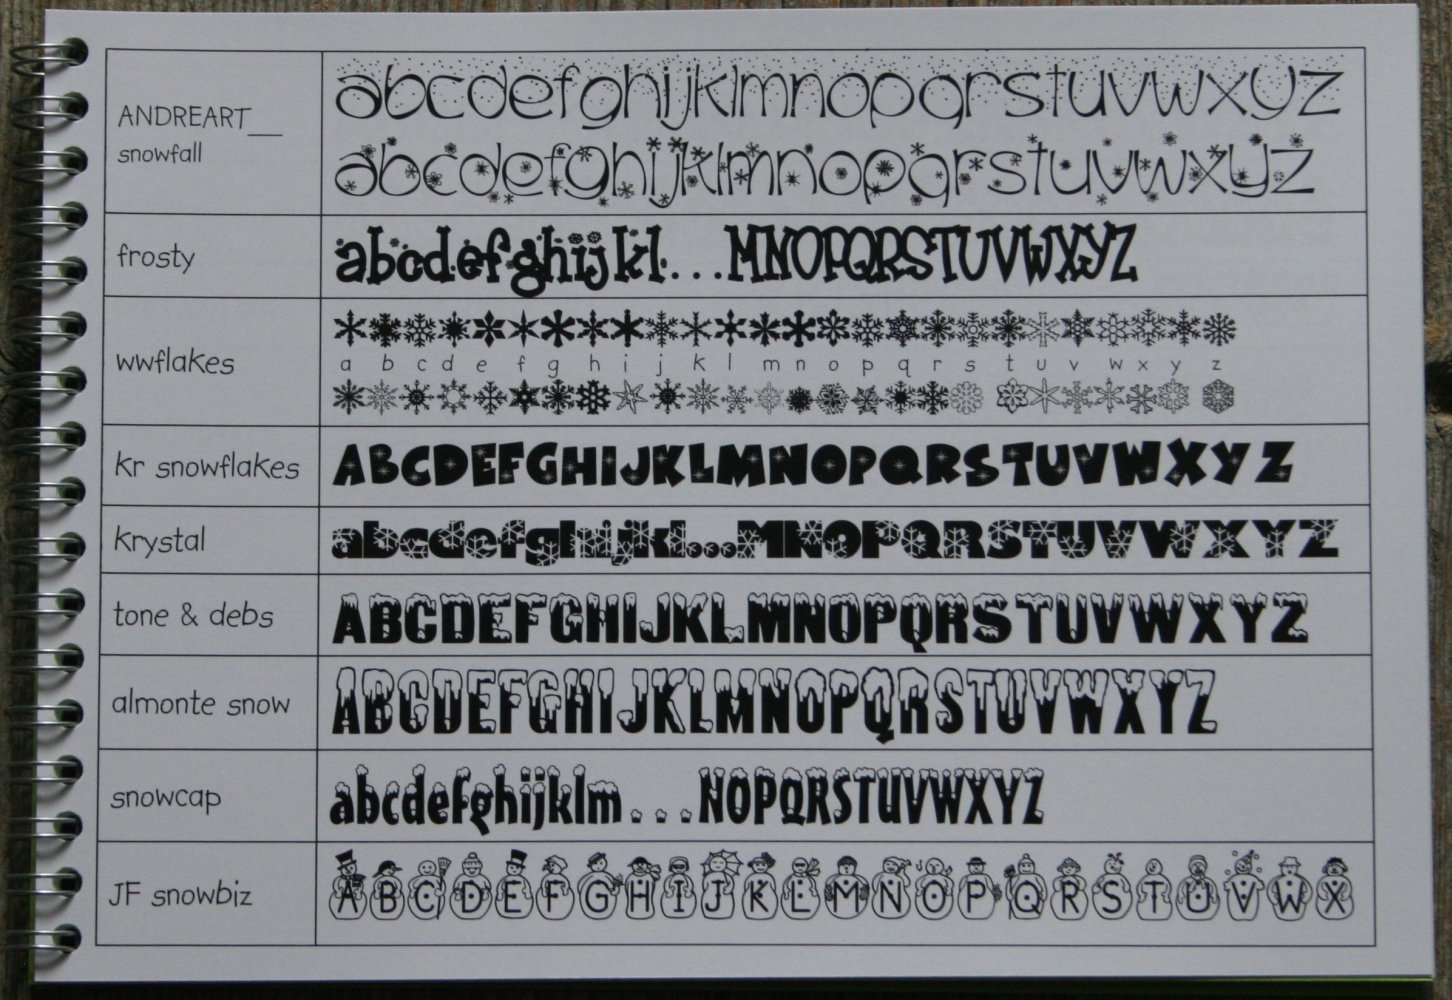 ANDREART__
snowfall
abcdefghijklmnopqrstuvwxyz
abcdefghijklmnopqrstuvwxyz
frosty
abcdefghijkl...MNOPQRSTUVWXYZ
wwflakes
a b c d e f g h i j k l m n o p q r s t u v w x y z
kr snowflakes
ABCDEFGHIJKLMNOPQRSTUVWXYZ
krystal
abcdefghijkl...MNOPQRSTUVWXYZ
tone & debs
ABCDEFGHIJKLMNOPQRSTUVWXYZ
almonte snow
ABCDEFGHIJKLMNOPQRSTUVWXYZ
snowcap
abcdefghijklm...NOPQRSTUVWXYZ
JF snowbiz
ABCDEFGHIJKLMNOPQRSTUVWX